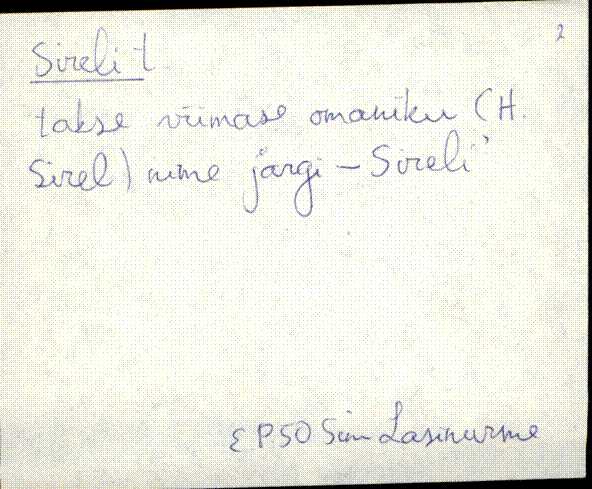 2
Sireli t.
takse viimase omaniku (H.
Sirel) nime järgi – Sireli'
EP50 Sim Lasinurme